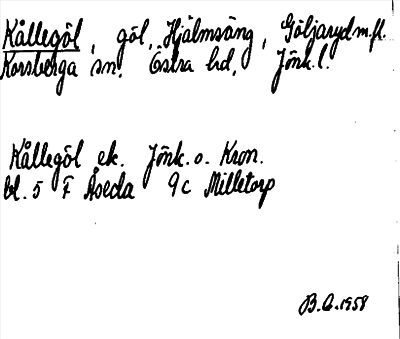 Kållegöl, göl, Hjälmsäng, Göljaryd m.fl.
Korsberga sn. Östra hd, Jönk. l.
Kållegöl ek. Jönk. o. Kron.
bl. 5 F Åseda 9c Milletorp
B.G. 1958